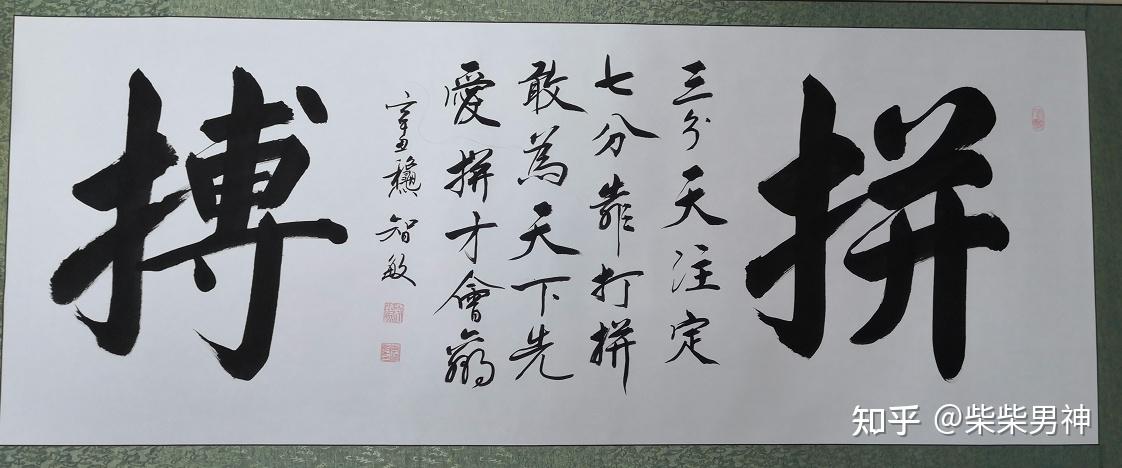 拼
三分天注定
七分靠打拼
敢為天下先
愛拼才會贏
辛丑龝智敏
搏
知乎 @柴柴男神